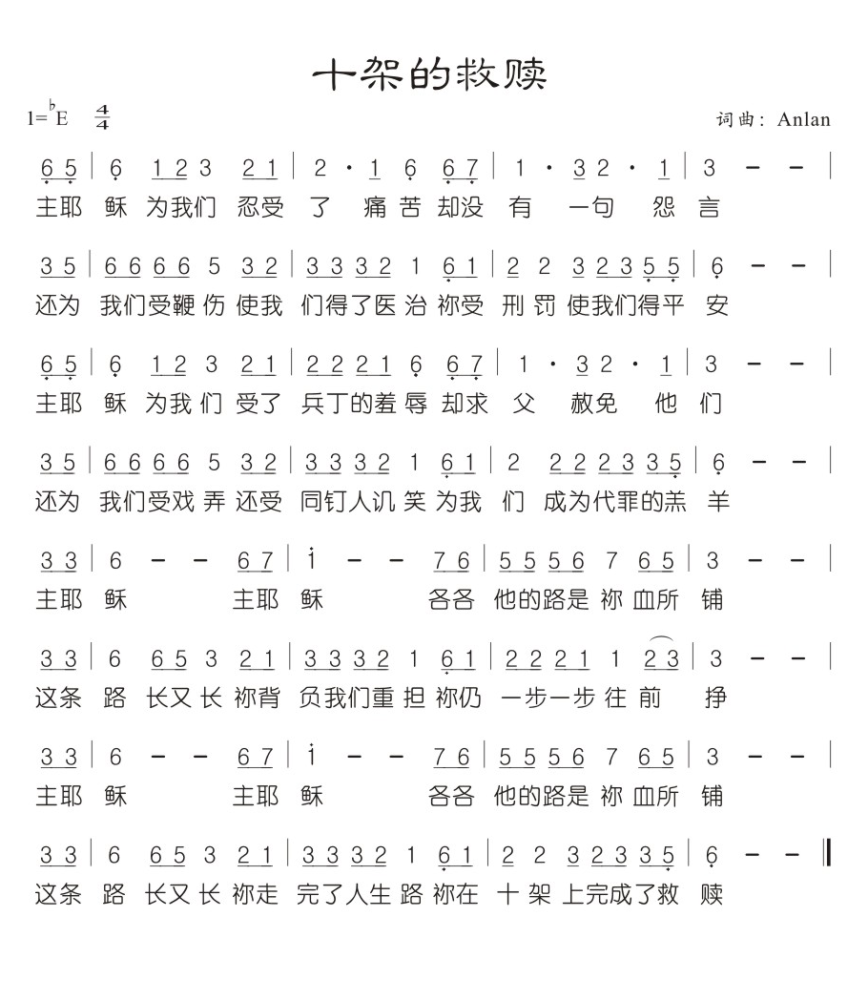 十架的救赎
1=♭E 4/4
词曲：Anlan
6̣ 5̣ | 6̣ 1 2 3 2 1 | 2 · 1 6̣ 6̣ 7̣ | 1 · 3 2 · 1 | 3 – – |
主耶 稣 为我们 忍受 了 痛 苦 却没 有 一句 怨 言
3 5 | 6 6 6 6 5 3 2 | 3 3 3 2 1 6̣ 1 | 2 2 3 2 3 5̣ 5̣ | 6̣ – – |
还为 我们受鞭 伤 使我 们得了医 治 祢受 刑 罚 使我们得平 安
6̣ 5̣ | 6̣ 1 2 3 2 1 | 2 2 2 1 6̣ 6̣ 7̣ | 1 · 3 2 · 1 | 3 – – |
主耶 稣 为我 们 受了 兵丁的羞 辱 却求 父 赦免 他 们
3 5 | 6 6 6 6 5 3 2 | 3 3 3 2 1 6̣ 1 | 2 2 2 2 3 3 5̣ | 6̣ – – |
还为 我们受戏 弄 还受 同钉人讥 笑 为我 们 成为代罪的羔 羊
3 3 | 6 – – 6 7 | 1̇ – – 7 6 | 5 5 5 6 7 6 5 | 3 – – |
主耶 稣 主耶 稣 各各 他的路是 祢 血所 铺
3 3 | 6 6 5 3 2 1 | 3 3 3 2 1 6̣ 1 | 2 2 2 1 1 2 3 | 3 – – |
这条 路 长又 长 祢背 负我们重 担 祢仍 一步一步 往 前 挣
3 3 | 6 – – 6 7 | 1̇ – – 7 6 | 5 5 5 6 7 6 5 | 3 – – |
主耶 稣 主耶 稣 各各 他的路是 祢 血所 铺
3 3 | 6 6 5 3 2 1 | 3 3 3 2 1 6̣ 1 | 2 2 3 2 3 3 5̣ | 6̣ – – ‖
这条 路 长又 长 祢走 完了人生 路 祢在 十 架 上完成了救 赎